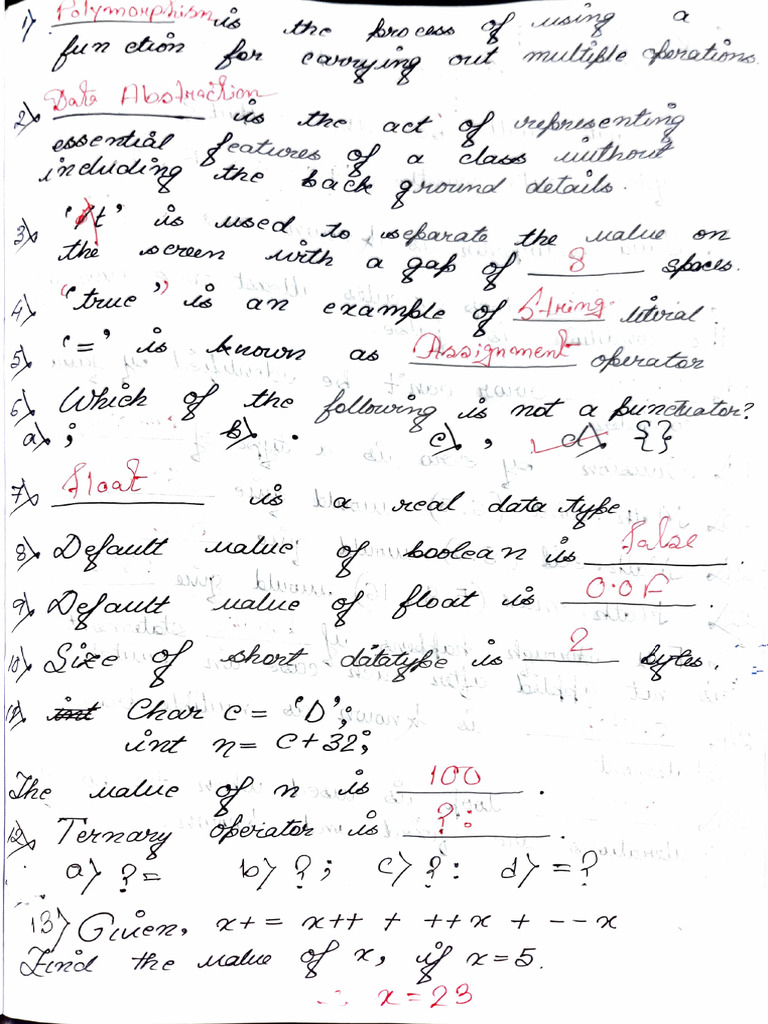 1) Polymorphism is the process of using a
function for carrying out multiple operations.
2) Data Abstraction is the act of representing
essential features of a class without
including the back ground details.
3) '\t' is used to separate the value on
the screen with a gap of 8 spaces.
4) "true" is an example of String literal.
5) '=' is known as Assignment operator
6) Which of the following is not a punctuator?
a) ; b) . c) , d) {}
7) float is a real data type.
8) Default value of boolean is false.
9) Default value of float is 0.0F.
10) Size of short datatype is 2 bytes.
11) int Char c = 'D';
int n = c+32;
The value of n is 100.
12) Ternary operator is ?:.
a) ?= b) ?; c) ?: d) =?
13) Given, x+= x++ + ++x + --x
Find the value of x, if x=5.
∴ x=23